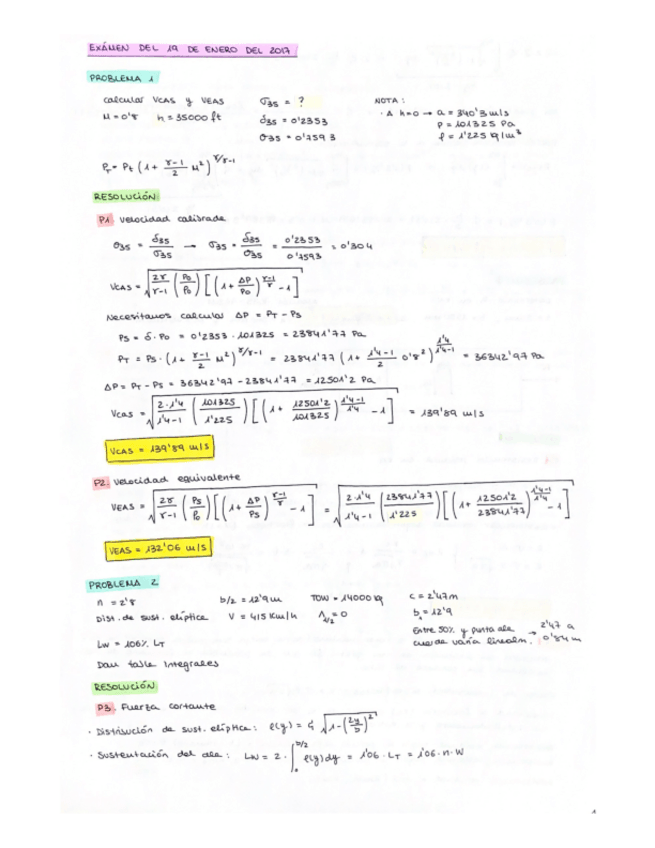 EXÁMEN DEL 19 DE ENERO DEL 2017
PROBLEMA 1
Calcular VCAS y VEAS σ35 = ? NOTA:
M = 0'8 h = 35000 ft δ35 = 0'2353 · A h=0 → a = 340'3 m/s
θ35 = 0'7593 P = 101325 Pa
ρ = 1'225 kg/m³
PT = Pt (1 + γ-1/2 M²)^γ/γ-1
RESOLUCIÓN
P1. Velocidad calibrada
θ35 = δ35/σ35 → σ35 = δ35/θ35 = 0'2353/0'7593 = 0'304
VCAS = √(2γ/γ-1 (P0/ρ0) [(1 + ΔP/P0)^γ-1/γ - 1])
Necesitamos calcular ΔP = PT - PS
PS = δ · P0 = 0'2353 · 101325 = 23841'77 Pa
PT = PS · (1 + γ-1/2 M²)^γ/γ-1 = 23841'77 (1 + 1'4-1/2 0'8²)^1'4/1'4-1 = 36342'97 Pa
ΔP = PT - PS = 36342'97 - 23841'77 = 12501'2 Pa
VCAS = √(2·1'4/1'4-1 (101325/1'225) [(1 + 12501'2/101325)^1'4-1/1'4 - 1]) = 139'89 m/s
VCAS = 139'89 m/s
P2. Velocidad equivalente
VEAS = √(2γ/γ-1 (PS/ρ0) [(1 + ΔP/PS)^γ-1/γ - 1]) = √(2·1'4/1'4-1 (23841'77/1'225) [(1 + 12501'2/23841'77)^1'4-1/1'4 - 1])
VEAS = 132'06 m/s
PROBLEMA 2
n = 2'8 b/2 = 12'9m TOW = 14000 kg c = 2'47m
Dist. de sust. elíptica V = 415 Km/h Λ1/2 = 0 b = 12'9
Entre 50% y punta ala → 2'47 a
Lw = 106% LT cuerda varía linealm. 0'84 m
Dan tabla integrales
RESOLUCIÓN
P3. Fuerza cortante
· Distribución de sust. elíptica: l(y) = √(1-(2y/b)²)
· Sustentación del ala: Lw = 2 · ∫0^b/2 l(y)dy = 1'06 · LT = 1'06 · n · W
1